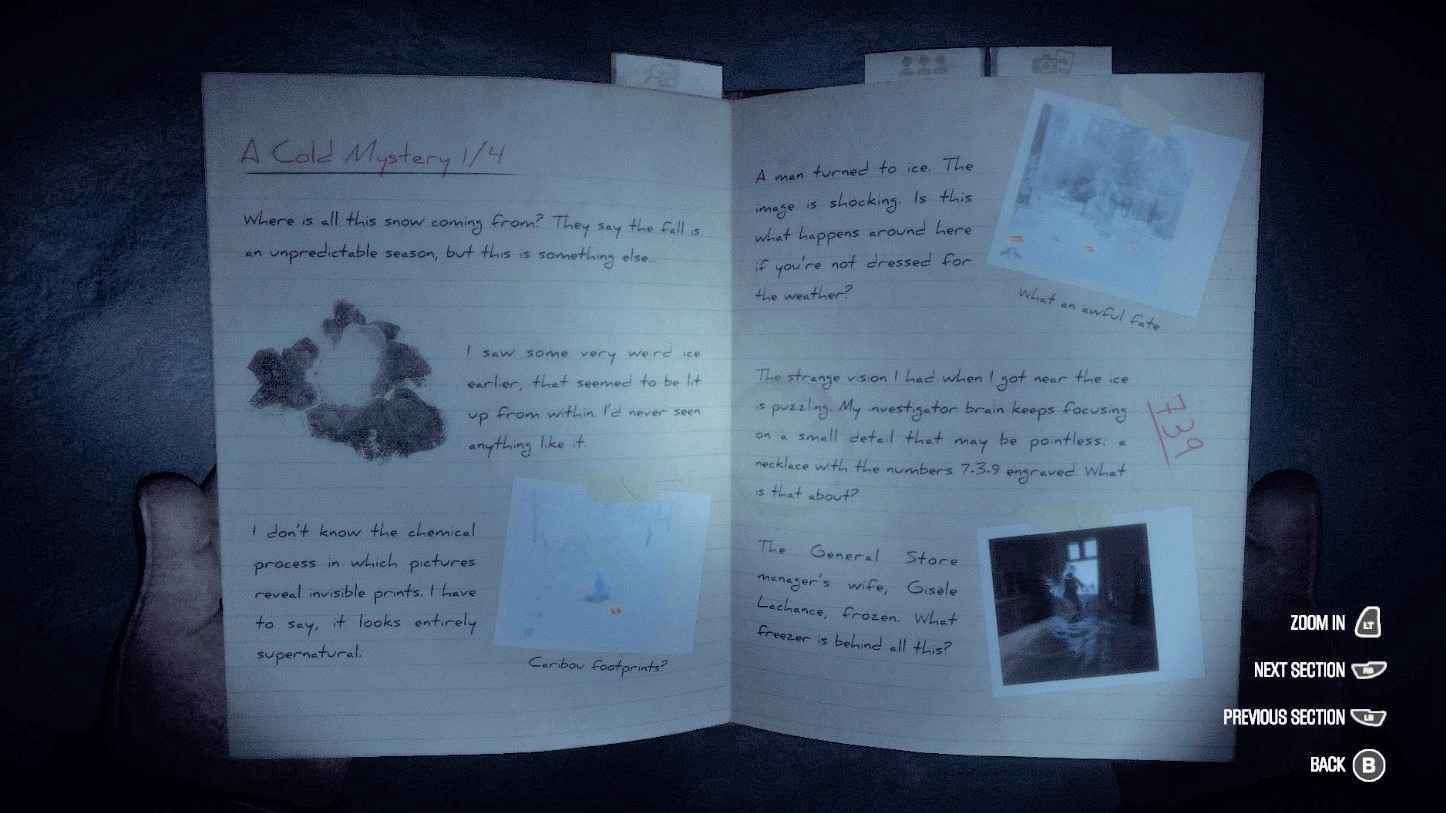 A Cold Mystery 1/4
Where is all this snow coming from? They say the fall is
an unpredictable season, but this is something else...
I saw some very weird ice
earlier, that seemed to be lit
up from within. I'd never seen
anything like it.
I don't know the chemical
process in which pictures
reveal invisible prints. I have
to say, it looks entirely
supernatural.
Caribou footprints?
A man turned to ice. The
image is shocking. Is this
what happens around here
if you're not dressed for
the weather?
What an awful fate
The strange vision I had when I got near the ice
is puzzling. My investigator brain keeps focusing
on a small detail that may be pointless: a
necklace with the numbers 7-3-9 engraved. What
is that about?
739
The General Store
manager's wife, Gisèle
Lachance, frozen. What
freezer is behind all this?
ZOOM IN LT
NEXT SECTION RB
PREVIOUS SECTION LB
BACK B